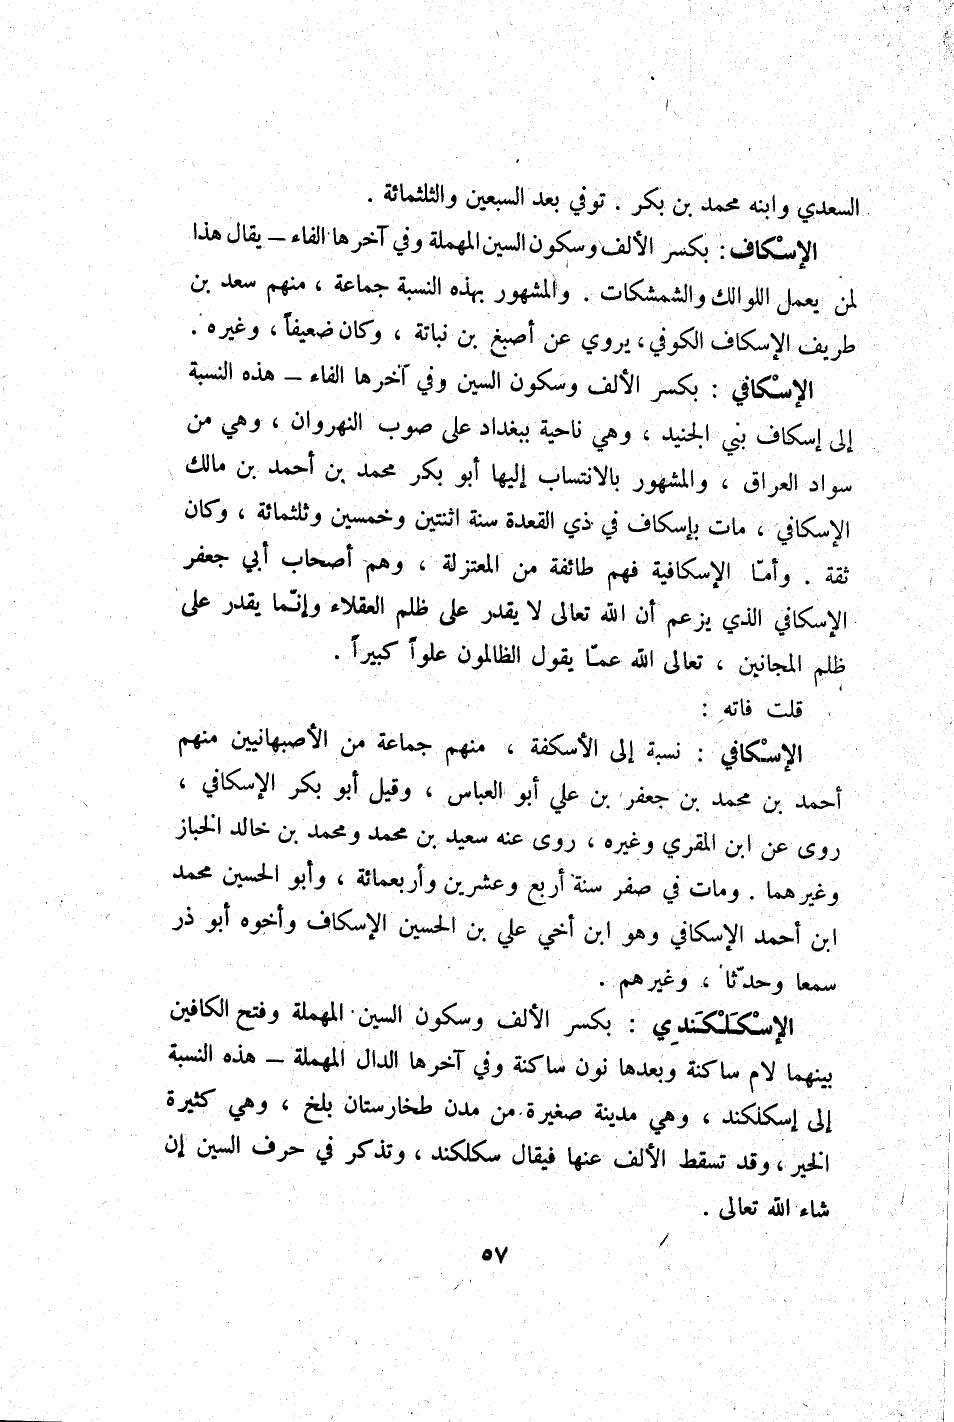 السعدي وابنه محمد بن بكر . توفي بعد السبعين والثلثمائة .
الإسْكاف : بكسر الألف وسكون السين المهملة وفي آخرها الفاء – يقال هذا
لمن يعمل اللوالك والشمشكات . والمشهور بهذه النسبة جماعة ، منهم سعد بن
طريف الإسكاف الكوفي ، يروي عن أصبغ بن نباتة ، وكان ضعيفاً ، وغيره .
الإسْكافي : بكسر الألف وسكون السين وفي آخرها الفاء – هذه النسبة
إلى إسكاف بني الجنيد ، وهي ناحية ببغداد على صوب النهروان ، وهي من
سواد العراق ، والمشهور بالانتساب إليها أبو بكر محمد بن أحمد بن مالك
الإسكافي ، مات بإسكاف في ذي القعدة سنة اثنتين وخمسين وثلثمائة ، وكان
ثقة . وأمّا الإسكافية فهم طائفة من المعتزلة ، وهم أصحاب أبي جعفر
الإسكافي الذي يزعم أن الله تعالى لا يقدر على ظلم العقلاء وإنّما يقدر على
ظلم المجانين ، تعالى الله عمّا يقول الظالمون علواً كبيراً .
قلت فاته :
الإسْكافي : نسبة إلى الأسكفة ، منهم جماعة من الأصبهانيين منهم
أحمد بن محمد بن جعفر بن علي أبو العباس ، وقيل أبو بكر الإسكافي ،
روى عن ابن المقري وغيره ، روى عنه سعيد بن محمد ومحمد بن خالد الخباز
وغيرهما . ومات في صفر سنة أربع وعشرين وأربعمائة ، وأبو الحسين محمد
ابن أحمد الإسكافي وهو ابن أخي علي بن الحسين الإسكاف وأخوه أبو ذر
سمعا وحدّثا ، وغيرهم .
الإسْكَلْكَندِي : بكسر الألف وسكون السين المهملة وفتح الكافين
بينهما لام ساكنة وبعدها نون ساكنة وفي آخرها الدال المهملة – هذه النسبة
إلى إسكلكند ، وهي مدينة صغيرة من مدن طخارستان بلخ ، وهي كثيرة
الخير ، وقد تسقط الألف عنها فيقال سكلكند ، وتذكر في حرف السين إن
شاء الله تعالى .
٥٧